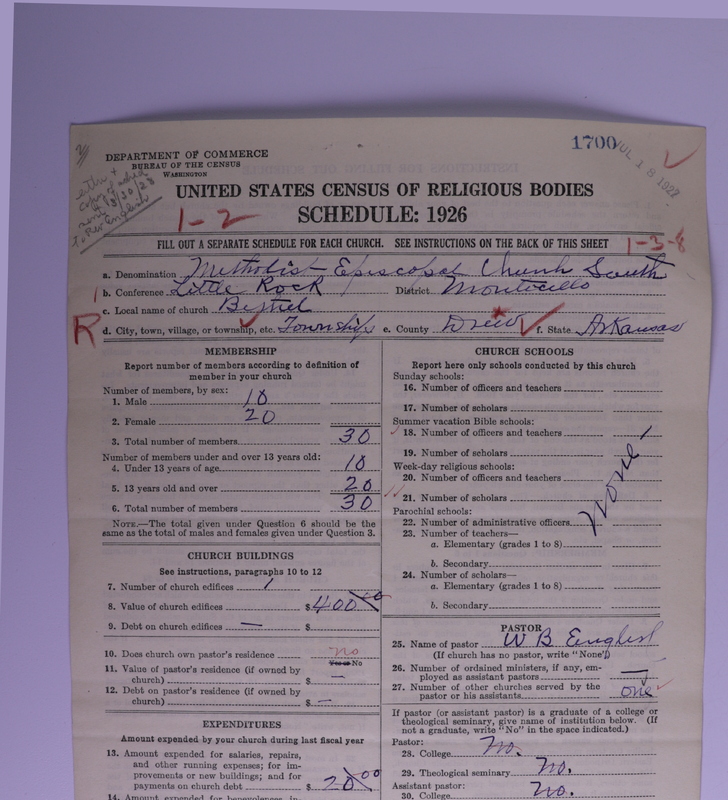 1700
JUL 18 1927
DEPARTMENT OF COMMERCE
BUREAU OF THE CENSUS
WASHINGTON
UNITED STATES CENSUS OF RELIGIOUS BODIES
1-2
SCHEDULE: 1926
FILL OUT A SEPARATE SCHEDULE FOR EACH CHURCH. SEE INSTRUCTIONS ON THE BACK OF THIS SHEET
1-3-8
a. Denomination Methodist Episcopal Church South
b. Conference Little Rock District Monticello
c. Local name of church Bethel
R
d. City, town, village, or township, etc. Township e. County Drew f. State Arkansas
MEMBERSHIP
Report number of members according to definition of
member in your church
Number of members, by sex:
1. Male 10
2. Female 20
3. Total number of members 30
Number of members under and over 13 years old:
4. Under 13 years of age 10
5. 13 years old and over 20
6. Total number of members 30
NOTE.—The total given under Question 6 should be the
same as the total of males and females given under Question 3.
CHURCH BUILDINGS
See instructions, paragraphs 10 to 12
7. Number of church edifices 1
8. Value of church edifices $400.00
9. Debt on church edifices —
10. Does church own pastor's residence no
Yes or No
11. Value of pastor's residence (if owned by
church) $ —
12. Debt on pastor's residence (if owned by
church) $ —
EXPENDITURES
Amount expended by church during last fiscal year
13. Amount expended for salaries, repairs,
and other running expenses; for im-
provements or new buildings; and for
payments on church debt $20.00
14. Amount expended for benevolences, in-
CHURCH SCHOOLS
Report here only schools conducted by this church
Sunday schools:
16. Number of officers and teachers
17. Number of scholars
Summer vacation Bible schools:
18. Number of officers and teachers
19. Number of scholars
Week-day religious schools:
20. Number of officers and teachers
21. Number of scholars
None
Parochial schools:
22. Number of administrative officers
23. Number of teachers—
a. Elementary (grades 1 to 8)
b. Secondary
24. Number of scholars—
a. Elementary (grades 1 to 8)
b. Secondary
PASTOR
25. Name of pastor W B English
(If church has no pastor, write "None")
26. Number of ordained ministers, if any, em-
ployed as assistant pastors —
27. Number of other churches served by the
pastor or his assistants one
If pastor (or assistant pastor) is a graduate of a college or
theological seminary, give name of institution below. (If
not a graduate, write "No" in the space indicated.)
Pastor:
28. College No.
29. Theological seminary No.
Assistant pastor:
30. College No.